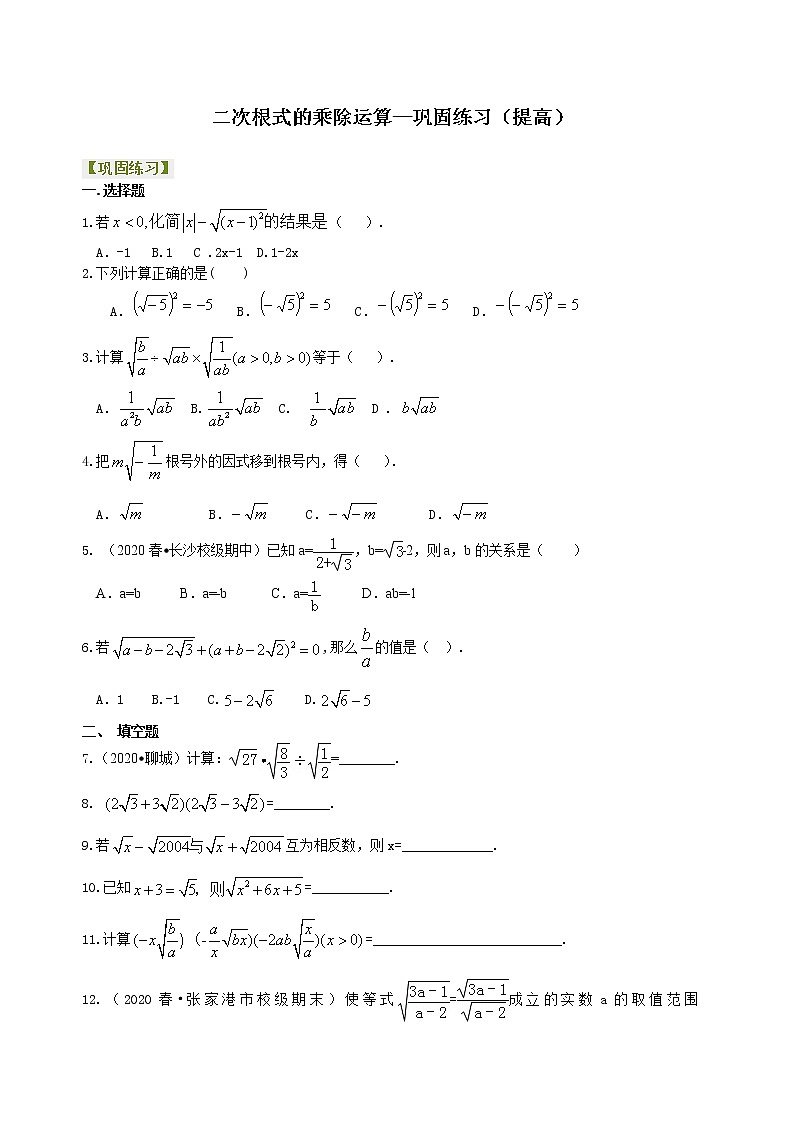 二次根式的乘除运算—巩固练习（提高）
【巩固练习】
一.选择题
1.若 x<0,化简|x|−√((x−1)²)的结果是（ ）.
A．-1 B.1 C .2x-1 D.1-2x
2.下列计算正确的是( )
A．(√−5)²=−5 B．(−√5)²=5 C．−(√5)²=5 D．−(−√5)²=5
3.计算√(b/a)÷√ab×√(1/ab)(a>0,b>0)等于（ ）.
A．1/(a²b)√ab B.1/(ab²)√ab C. 1/b√ab D . b√ab
4.把m√(−1/m)根号外的因式移到根号内，得（ ）.
A．√m B.−√m C.−√−m D.√−m
5. （2020春•长沙校级期中）已知a=1/(2+√3)，b=√3-2，则a，b的关系是（ ）
A．a=b B．a=-b C．a=1/b D．ab=-1
6.若√(a−b−2√3+(a+b−2√2)²=0),那么b/a的值是（ ）.
A．1 B.-1 C.5−2√6 D.2√6−5
二、 填空题
7.（2020•聊城）计算：√27•√(8/3)÷√(1/2)=________.
8. (2√3+3√2)(2√3−3√2)=________.
9.若√x−√2004与√x+√2004互为相反数，则x=_____________.
10.已知x+3=√5，则√(x²+6x+5)=___________.
11.计算(−x√(b/a)) (-a/x√bx)(−2ab√(x/a))(x>0)=___________________________.
12.（2020春•张家港市校级期末）使等式√((3a−1)/(a−2))=√(3a−1)/√(a−2)成立的实数a的取值范围